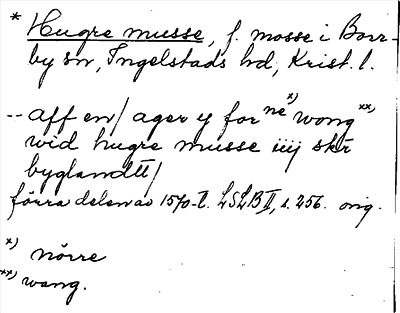 * Hugre musse, f. mosse i Borr-
by sn, Ingelstads hd, Krist. l.
-- aff en/ ager y for ne x) wong xx)
wid hugre musse iiij skr
byglandtt/
förra delen av 1570-t. LSLB II, s. 256. orig.
x) nörre
xx) wang.